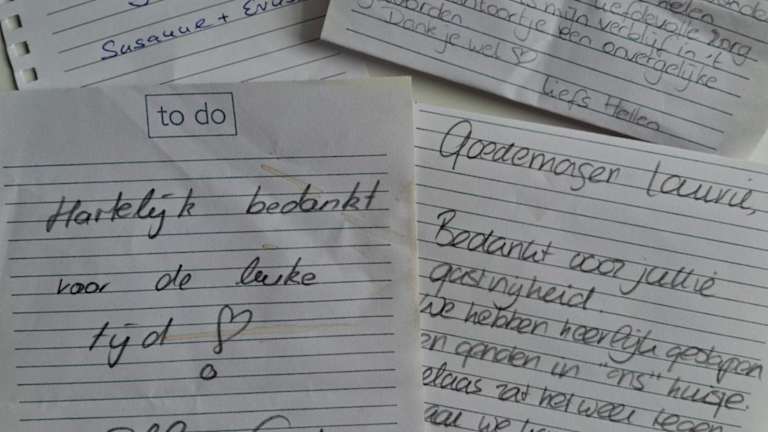 Susanne + Erus
Hellen
liefdevolle zorg
mijn verblijf in 't
antoortje een onvergetelijke
worden
Dank je wel ♡
Liefs Hellen
to do
Hartelijk bedankt
voor de leuke
tijd
Goedemorgen Laurie,
Bedankt voor jullie
gastvrijheid.
We hebben heerlijk geslapen
en genoten in "ons" huisje.
elaas zat het weer tegen
aar we